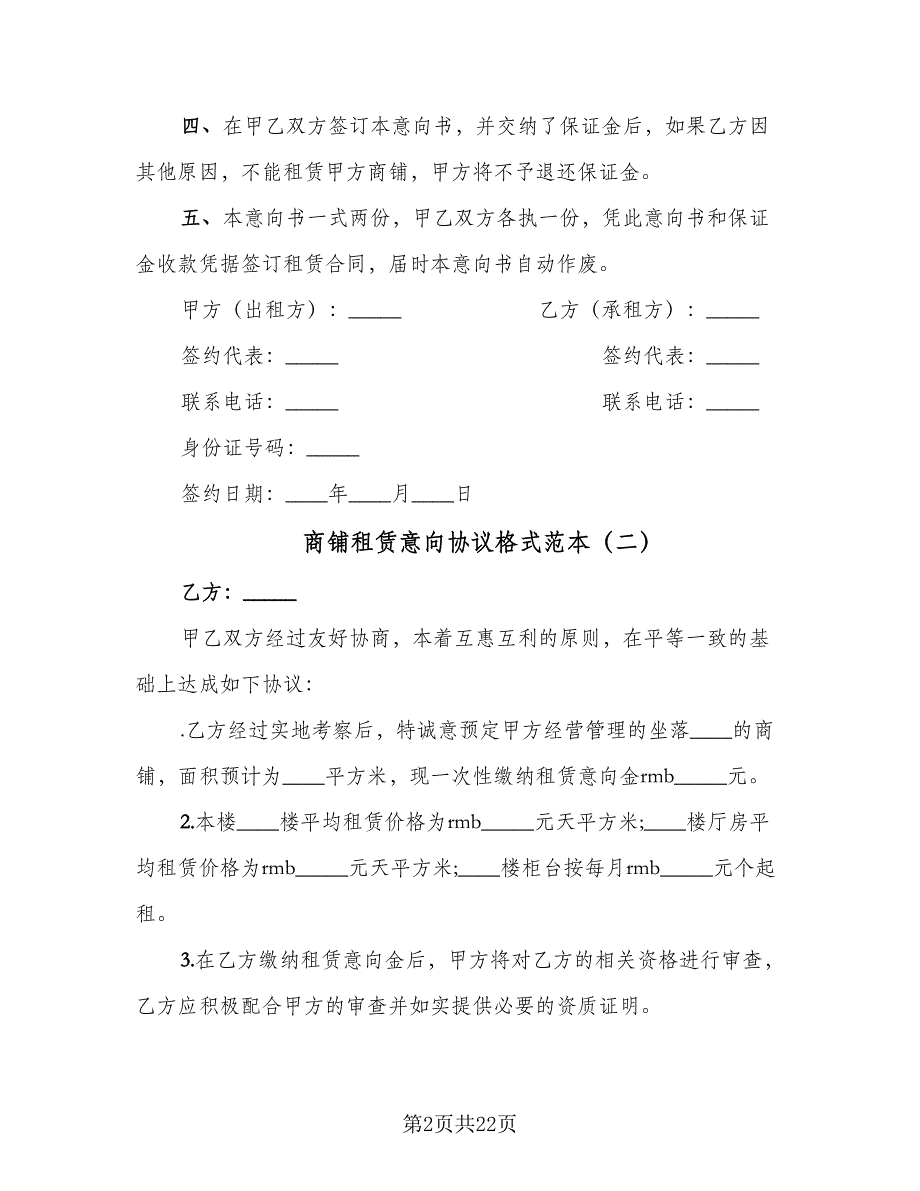 四、在甲乙双方签订本意向书，并交纳了保证金后，如果乙方因
其他原因，不能租赁甲方商铺，甲方将不予退还保证金。
五、本意向书一式两份，甲乙双方各执一份，凭此意向书和保证
金收款凭据签订租赁合同，届时本意向书自动作废。
甲方（出租方）：_____ 乙方（承租方）：_____
签约代表：_____ 签约代表：_____
联系电话：_____ 联系电话：_____
身份证号码：_____
签约日期：____年____月____日
商铺租赁意向协议格式范本（二）
乙方：_____
甲乙双方经过友好协商，本着互惠互利的原则，在平等一致的基
础上达成如下协议：
.乙方经过实地考察后，特诚意预定甲方经营管理的坐落____的商
铺，面积预计为____平方米，现一次性缴纳租赁意向金rmb_____元。
2.本楼____楼平均租赁价格为rmb_____元天平方米;____楼厅房平
均租赁价格为rmb_____元天平方米;____楼柜台按每月rmb_____元个起
租。
3.在乙方缴纳租赁意向金后，甲方将对乙方的相关资格进行审查，
乙方应积极配合甲方的审查并如实提供必要的资质证明。
第2页共22页